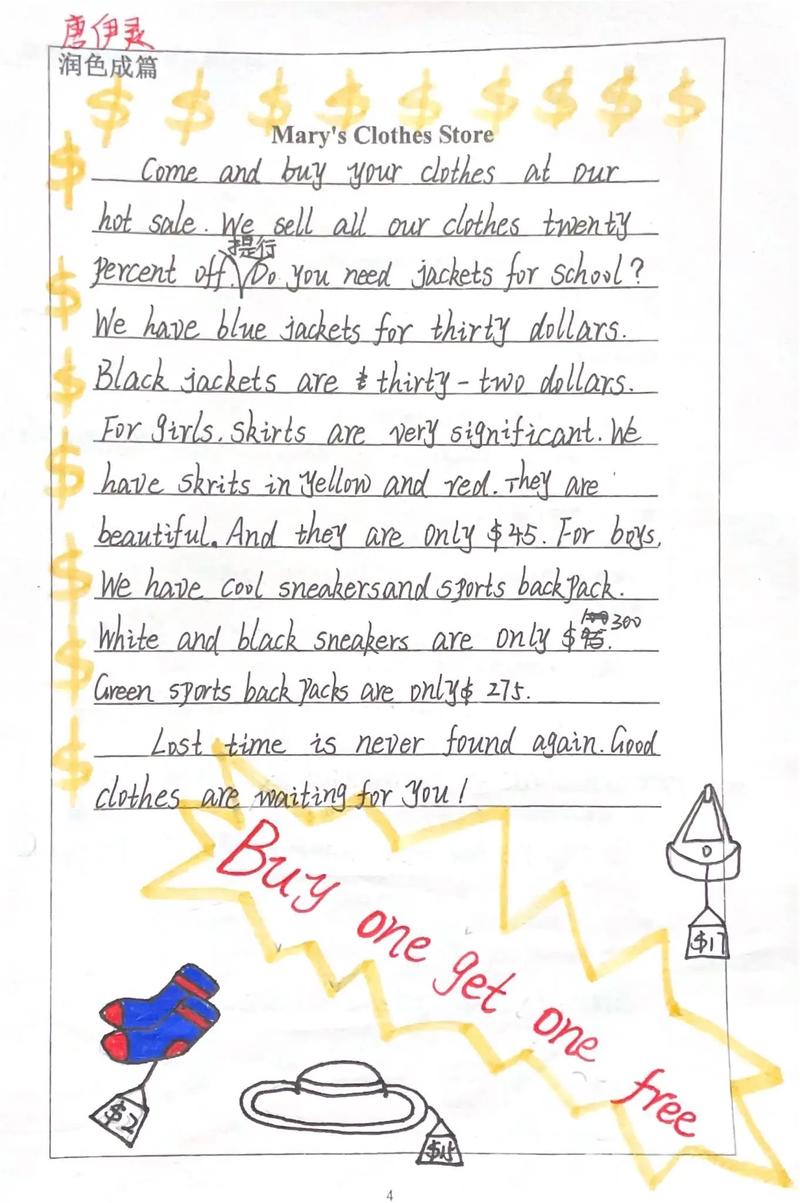 唐伊灵
润色成篇
$ $ $ $ $ $ $ $ $
Mary's Clothes Store
Come and buy your clothes at our
hot sale. We sell all our clothes twenty
提行
percent off. Do you need jackets for school?
We have blue jackets for thirty dollars.
Black jackets are thirty-two dollars.
For girls, skirts are very significant. We
have skrits in yellow and red. They are
beautiful. And they are only $45. For boys,
We have cool sneakers and sports backpack.
White and black sneakers are only $300.
Green sports back packs are only $275.
Lost time is never found again. Good
clothes are waiting for you!
Buy one get one free
$17
$2
$15
4